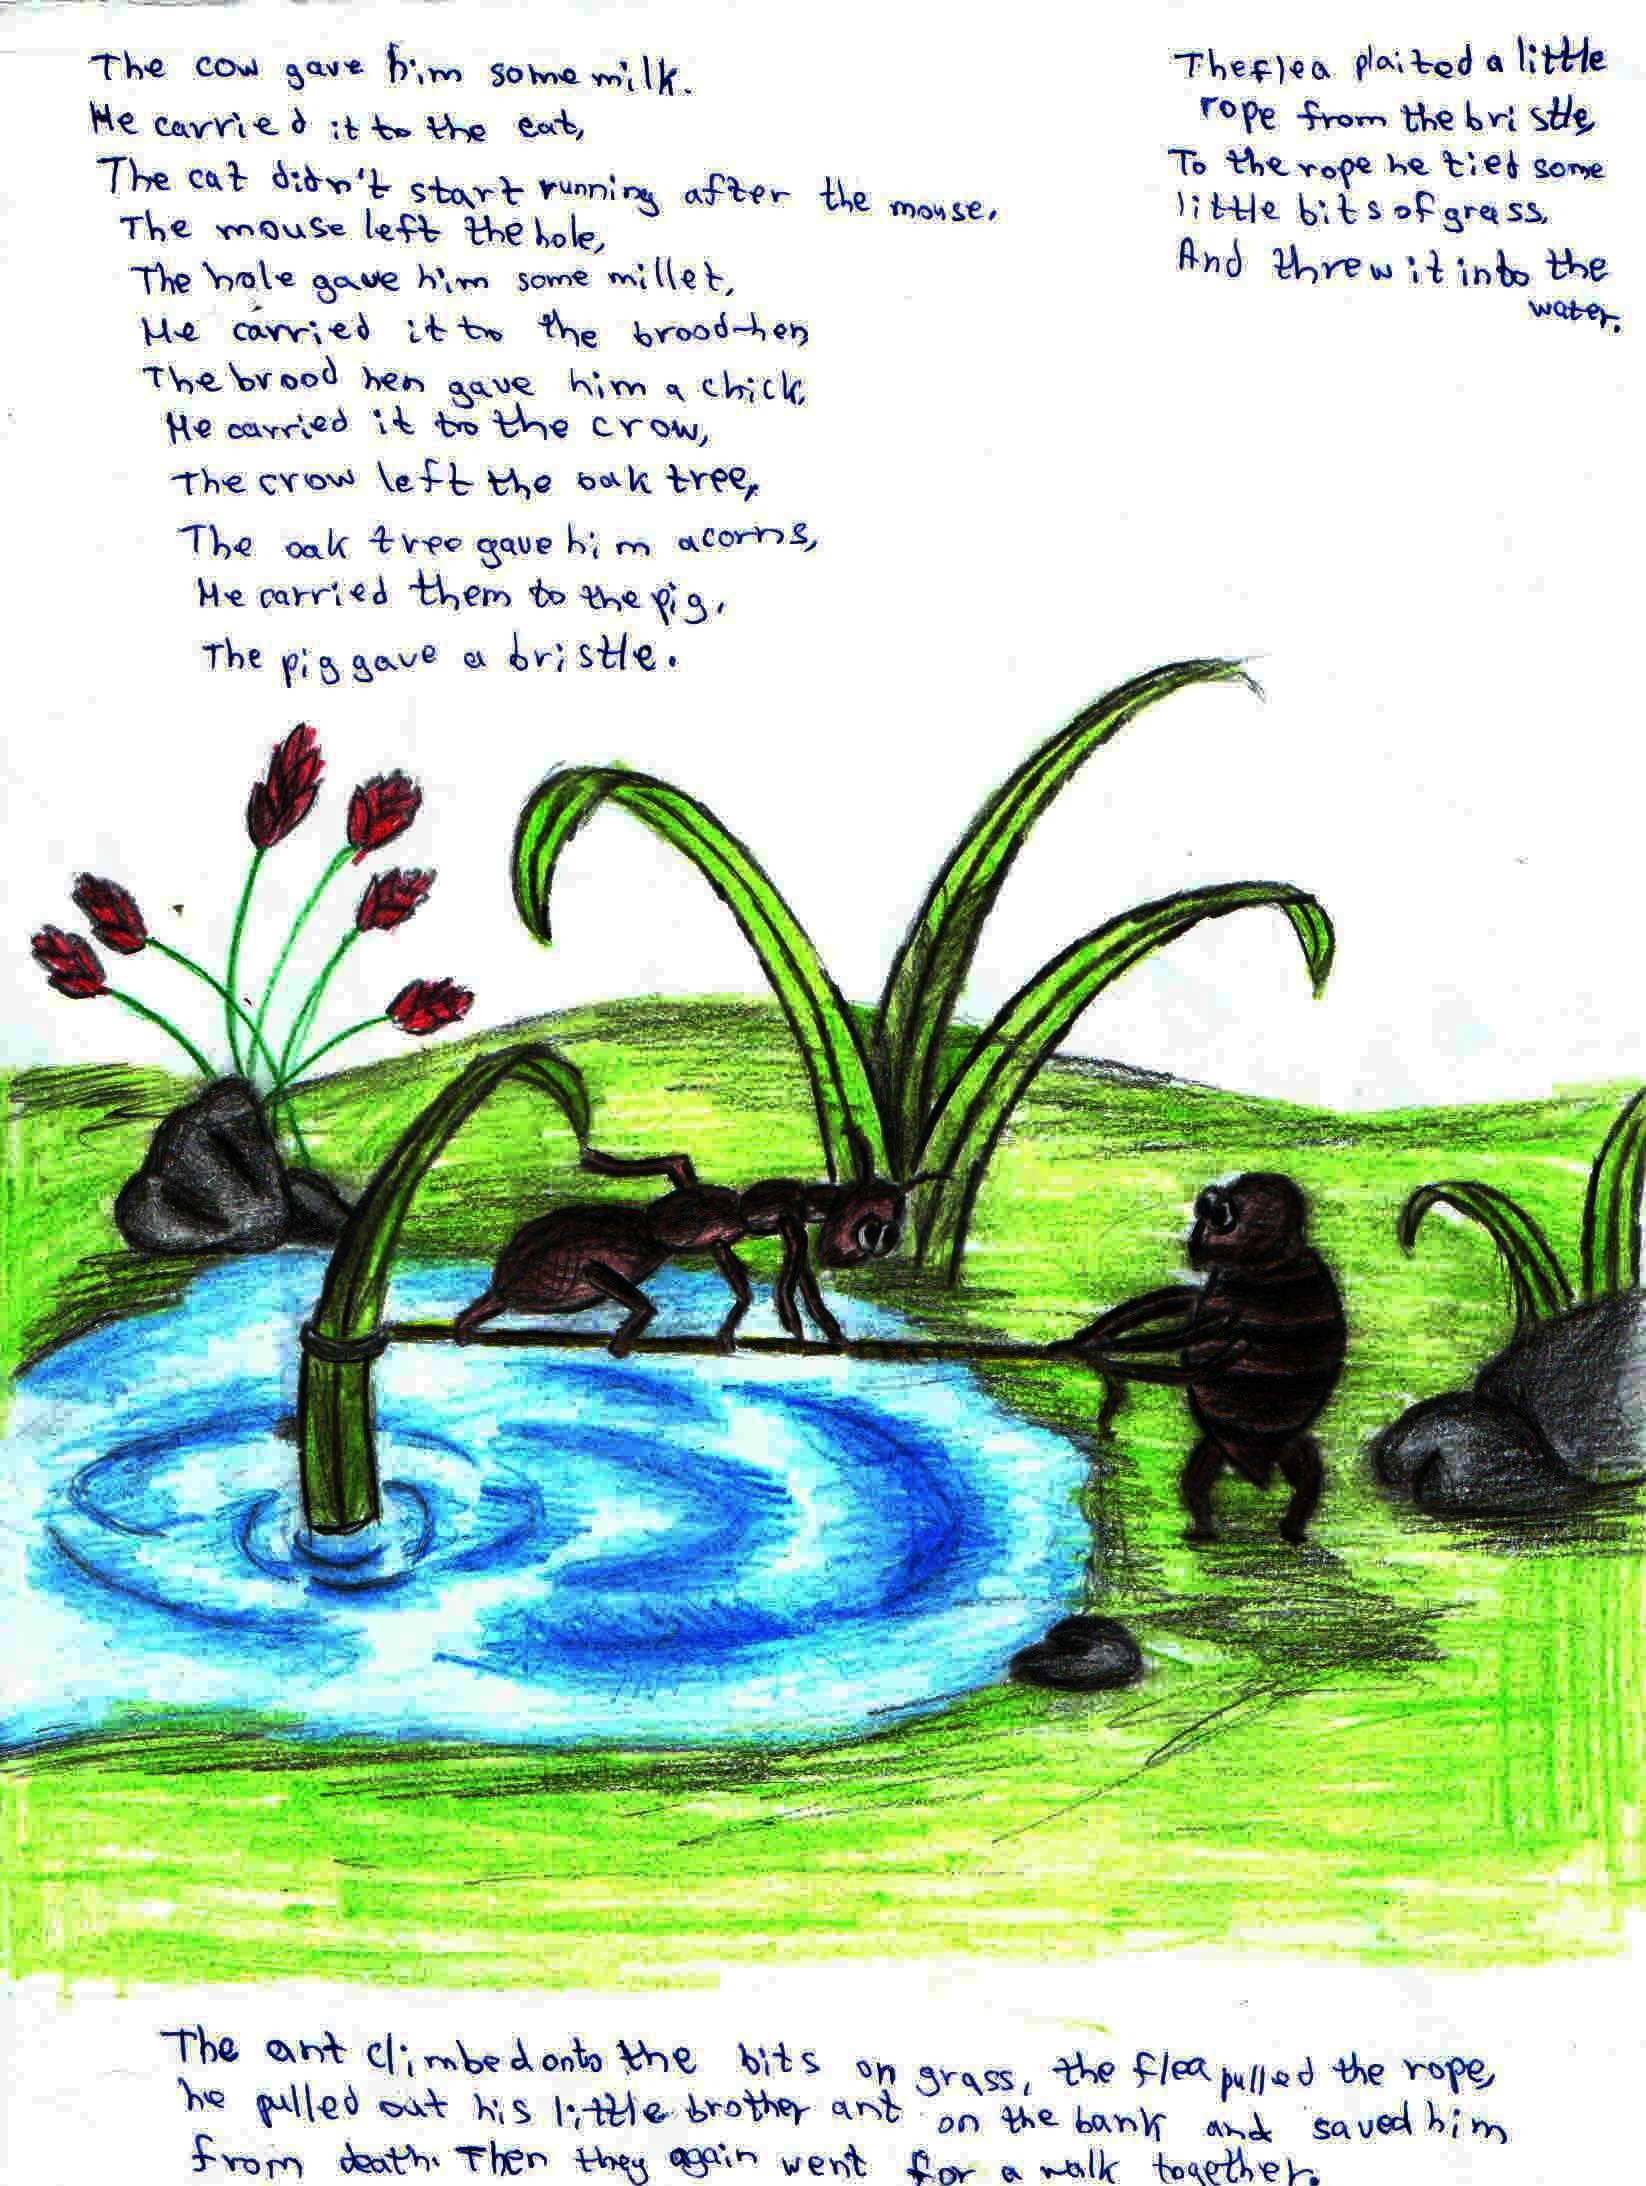 The cow gave him some milk.
He carried it to the cat,
The cat didn't start running after the mouse.
The mouse left the hole,
The hole gave him some millet,
He carried it to the brood-hen
The brood hen gave him a chick,
He carried it to the crow,
The crow left the oak tree,
The oak tree gave him acorns,
He carried them to the pig.
The pig gave a bristle.
The flea plaited a little
rope from the bristle,
To the rope he tied some
little bits of grass,
And threw it into the
water.
The ant climbed onto the bits on grass, the flea pulled the rope,
he pulled out his little brother ant on the bank and saved him
from death. Then they again went for a walk together.